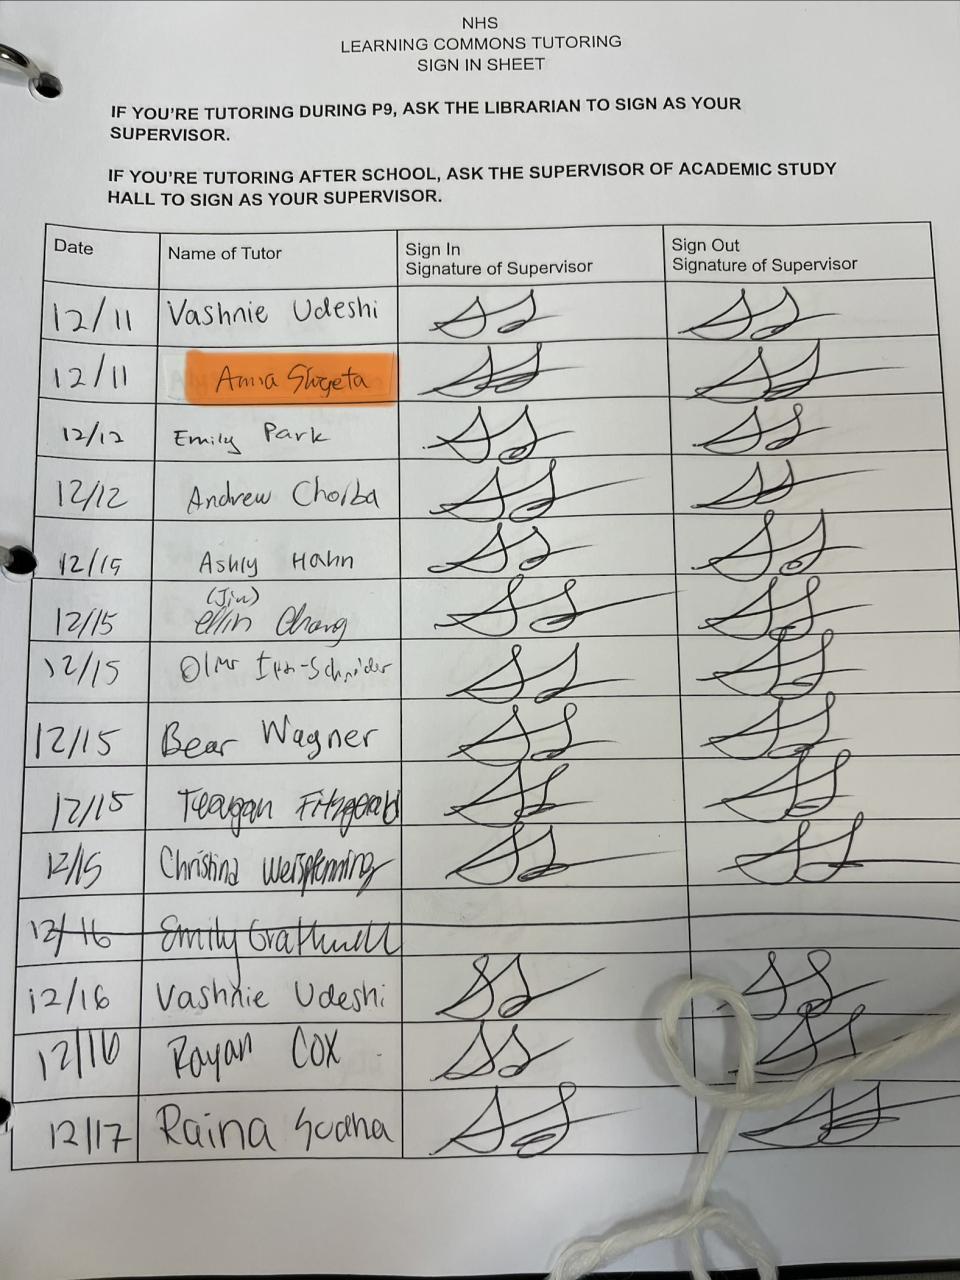 NHS
LEARNING COMMONS TUTORING
SIGN IN SHEET
IF YOU'RE TUTORING DURING P9, ASK THE LIBRARIAN TO SIGN AS YOUR
SUPERVISOR.
IF YOU'RE TUTORING AFTER SCHOOL, ASK THE SUPERVISOR OF ACADEMIC STUDY
HALL TO SIGN AS YOUR SUPERVISOR.
Date Name of Tutor Sign In Signature of Supervisor Sign Out Signature of Supervisor
12/11 Vashnie Udeshi
12/11
12/12 Emily Park
12/12 Andrew Chorba
12/15 Ashly Hahn
(Jin)
12/15 ellin Chang
12/15
12/15 Bear Wagner
12/15 Teagan Fitzgerald
12/15 Christina Weispfenning
12/16 Emily
12/16 Vashnie Udeshi
12/16 Rayan Cox
12/17 Raina